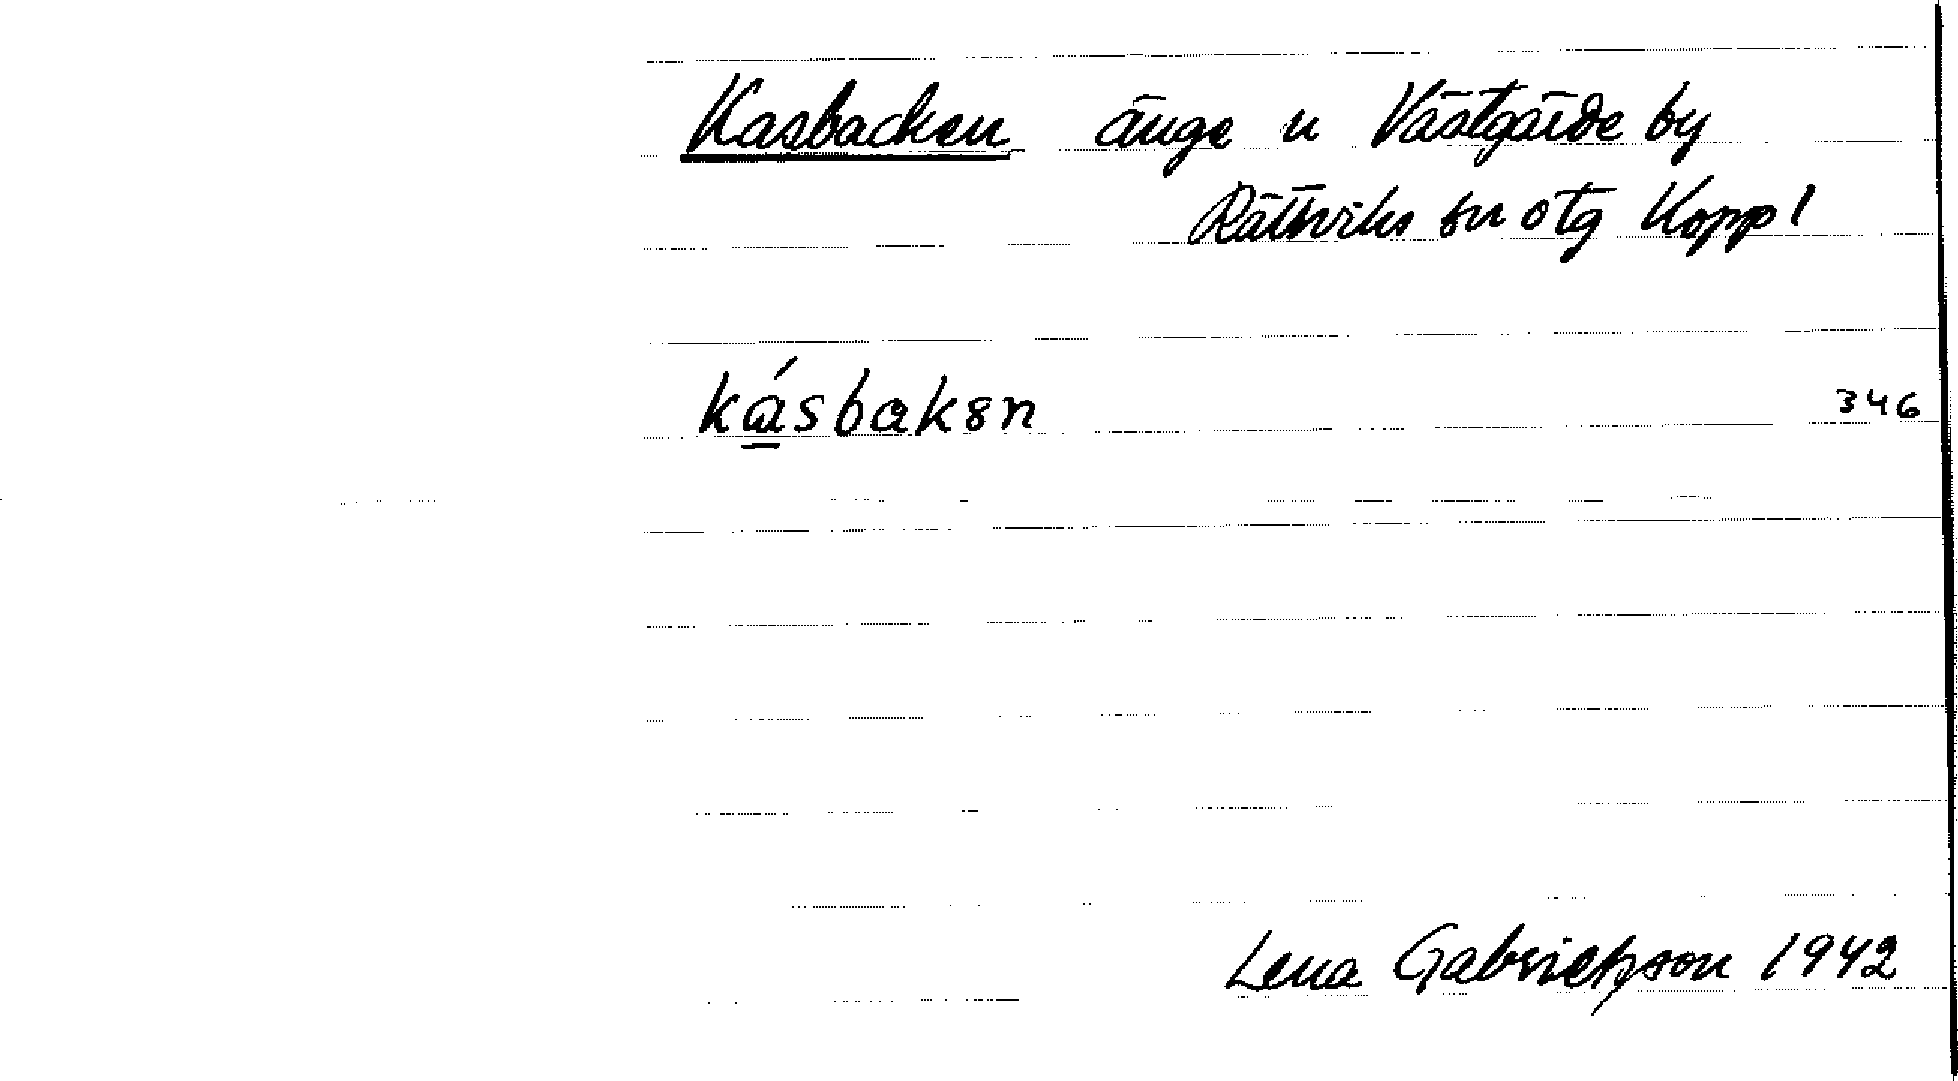 Kasbacken änge n Västgärde by
Rättviks sn otg Kopp l
kásbakən 346
Lena Gabrielsson 1942